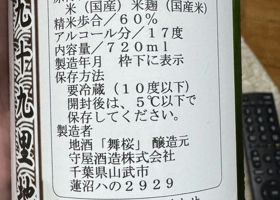 米（国産）米麹（国産米）
精米歩合／60％
アルコール分／17度
内容量／720ml
製造年月　枠下に表示
保存方法
要冷蔵（10度以下）
開封後は、5℃以下で
保存してください。
製造者
地酒「舞桜」醸造元
守屋酒造株式会社
千葉県山武市
蓮沼ハの2929
九十九里地